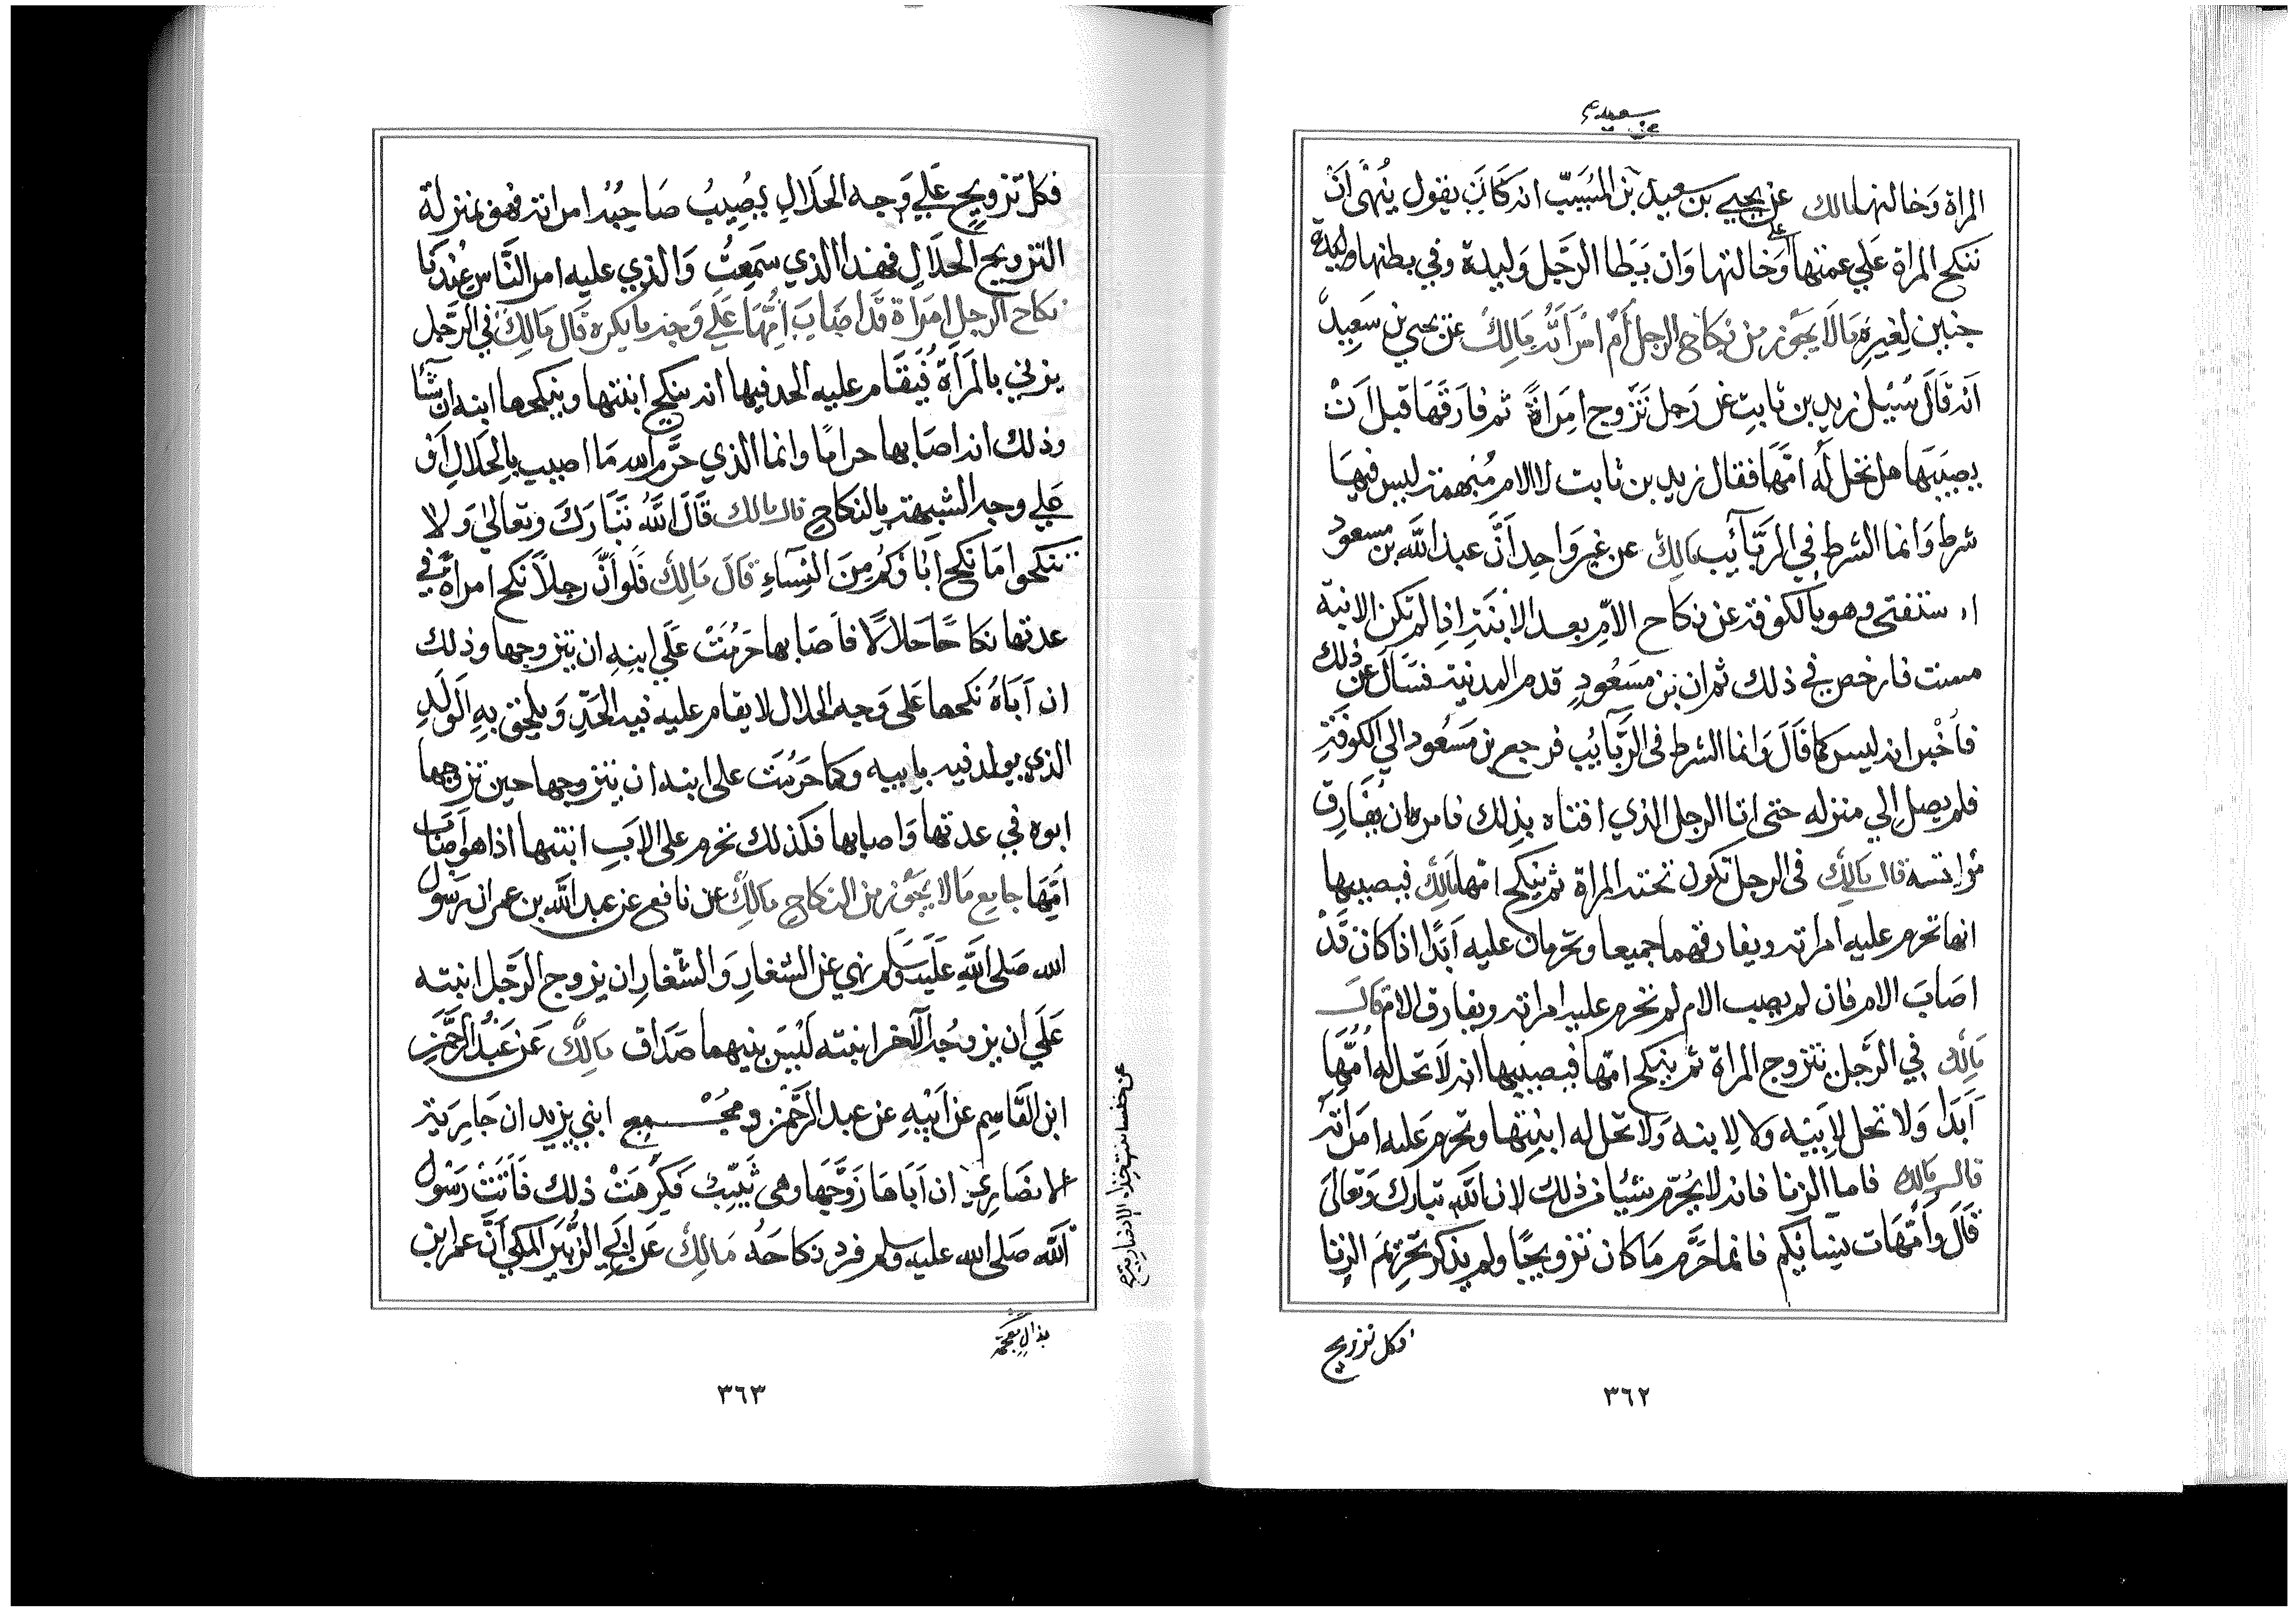 عن سعيد
المراة وَخالتها مالك عن يحيي بن سعيد بن المُسَيّب انه كَانَ يقول يُنْهَى انْ
تنكح المراة عَلي عمتها وَعلى خالتها وَان يَطا الرَّجل وَليدة وفي بطنها
جنين لِغيرِه مَا لَا يجَوز من نِكاح الرجل أُمّ امْرَأته مَالِكٌ عن يحيي بن سَعِيدٍ
اَنه قَالَ سُئِلَ زيد بن ثابتٍ عن رَجل تَزّوج امرَاةً ثم فارَقَهَا قبل اَنْ
يصِيبَها هل تحل لَه امّهَا فقال زيد بن ثابت لا الام مُبْهمة ليس فيهَا
شرط وَانما الشرط في الرَّبَائب مَالِكٌ عن غير وَاحِد اَنَّ عبد الله بن مسعود
استفتى وهو بالكوفة عن نكاح الامِّ بعد الابنَةِ اذا لم تكن الابنة
مست فارخص في ذلك ثم ان بن مَسعُودٍ قدم المدينة فسَاَل عن ذلك
فاُخْبر انه ليس كما قَالَ وَانما الشرط فى الرَّبَائب فرجع بن مَسعُود الي الكوفَةِ
فلم يصل اِلي منزله حتى اتا الرجل الذي افتاه بذلك فامره ان يُفَارِق
امراته قال مالك فى الرجل تكون تحته المراة ثم ينكح امّها فيصيبها
انها تحرم عليه امراته ويفارقهما جميعا وتحرمان عليه اَبَدًا اذا كان قَدْ
اصَابَ الام فان لم يصب الام لم تحرم عليه امراته ويفارق الام قال
مَالِك في الرَّجل يتزوج المراة ثم ينكح امّها فيصيبها انه لَا تحل له اُمُّهَا
اَبَدَا وَلا تحل لِاَبِيْه ولا لِابنه وَلا تحل له ابنتها وتحرم عَليه امرَاته
قال مالِك فاما الزنا فانه لا يُحرّم شيئا من ذلك لان اللَّه تبارك وَتعالىَ
قَالَ وَاُمّهَات نِسائِكم فانما حَرَّم مَا كان تزويجًا ولم يذكر تحَرِيمَ الزنا
فكل تزويج
فكل تزويجٍ عَلي وَجه الحَلالِ يُصِيبُ صَاحِبُه امراته فهو بمنزلة
التزويج الحلالِ فهذا الذي سَمِعتُ وَالذي عليه امر النَّاس عِنْدنَا
نكاح الرجل امرَاة قَد اصَابَ اُمّهَا عَلَي وَجه ما يكره قَال مَالِكٌ في الرَّجل
يزني بالمَرأة فَيقَام عليه الحد فيها انه ينكح ابنتها وينكحها ابنه ان شآء
وذلك انه اصَابها حرامًا وانما الذي حَرَّم الله مَا اصيب بالحَلالِ اَوْ
عَلي وجه الشبهة بالنكاح قال مالك قَالَ اللَّه تَبَارَكَ وتعاليٰ وَلا
تنكحوا مَا نكح آبَاؤكُم مِنَ النِسَاءِ قَالَ مَالِكٌ فَلو اَنَّ رجلاً نكح امراةً في
عدتها نكاحًا حَلالًا فاَصَابها حَرُمَتْ عَلَي ابنِهِ ان يتزوجها وذلك
ان اَبَاهُ نكحها عَلَى وَجه الحلال لا يقام عليه فيه الحَدّ وَيلحق بِهِ الوَلَدِ
الذي يولد فيه بابيه وكما حَرُمَت على ابنه ان يتزوجها حين تزوجها
ابوه في عدتها وَاصابها فكذلك تحرم على الابَِ ابنتها اذا هو اَصَابَ
اُمَّهَا جَامِع مَا لا يَجوز من النكاح مَالِكٌ عن نافع عن عبد اللَّه بن عمر ان رسُول
الله صَلى اللَّه عَلَيه وَسَلم نهي عن الشغارِ وَالشّغَارِ ان يزوج الرَّجل ابنته
عَلَي ان يزوجُه الآخر ابنته لَيْسَ بينهما صَدَاق مَالِكٌ عَنْ عَبْد الرَّحمن
ابن القَاسِم عن اَبِيْهِ عن عبد الرَّحمن ومُجْمِع ابني يزيد ان جَارِيَة
عن خنساء بنت خذام الانصارية
الانصَارِي ان اَبَاهَا زَوَّجَهَا وهى ثَيِّبٌ فَكَرِهَتْ ذلك فَاَتَتْ رَسُوْل
اللَّه صَلى الله عليه وسلم فرد نكَاحَهُ مَالِكٌ عَن ابي الزُّبَير المَكي اَنَّ عمر ابن
بذال معجمة
٣٦٣
٣٦٢